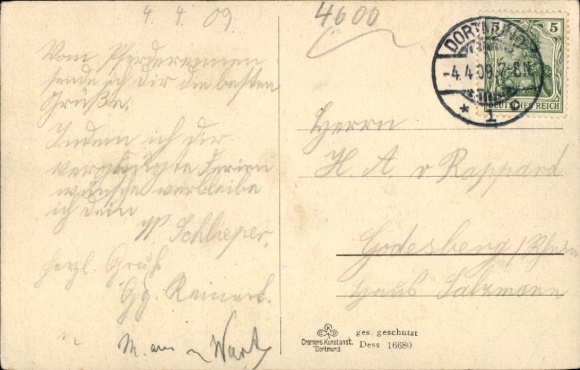 4. 4. 09.
4600
Vom Pferderennen
sende ich dir die besten
Grüße.
Indem ich dir
vergnügte Ferien
wünsche verbleibe
ich dein
W. Schlieper,
herzl. Gruß
Gg. Reinert.
M.
DORTMUND
-4.4.09.7-8N
* 1 c
5
DEUTSCHES REICH
Herrn
H. A. v Rappard
Godesberg /Rhein
Haus Salzmann
Cramers Kunstanst.
Dortmund
ges. geschützt
Dess 16680